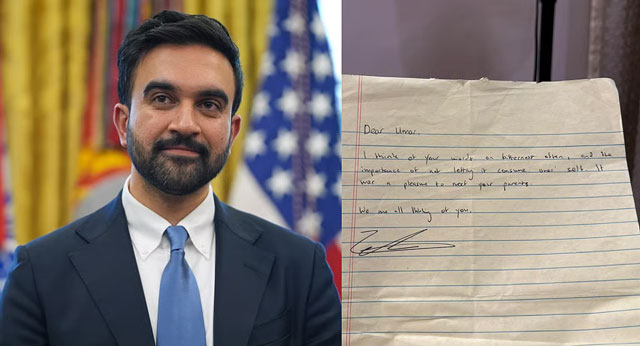 Dear Umar,
I think of your words on bitterness often, and the
importance of not letting it consume ones self. It
was a pleasure to meet your parents.
We are all thinking of you.